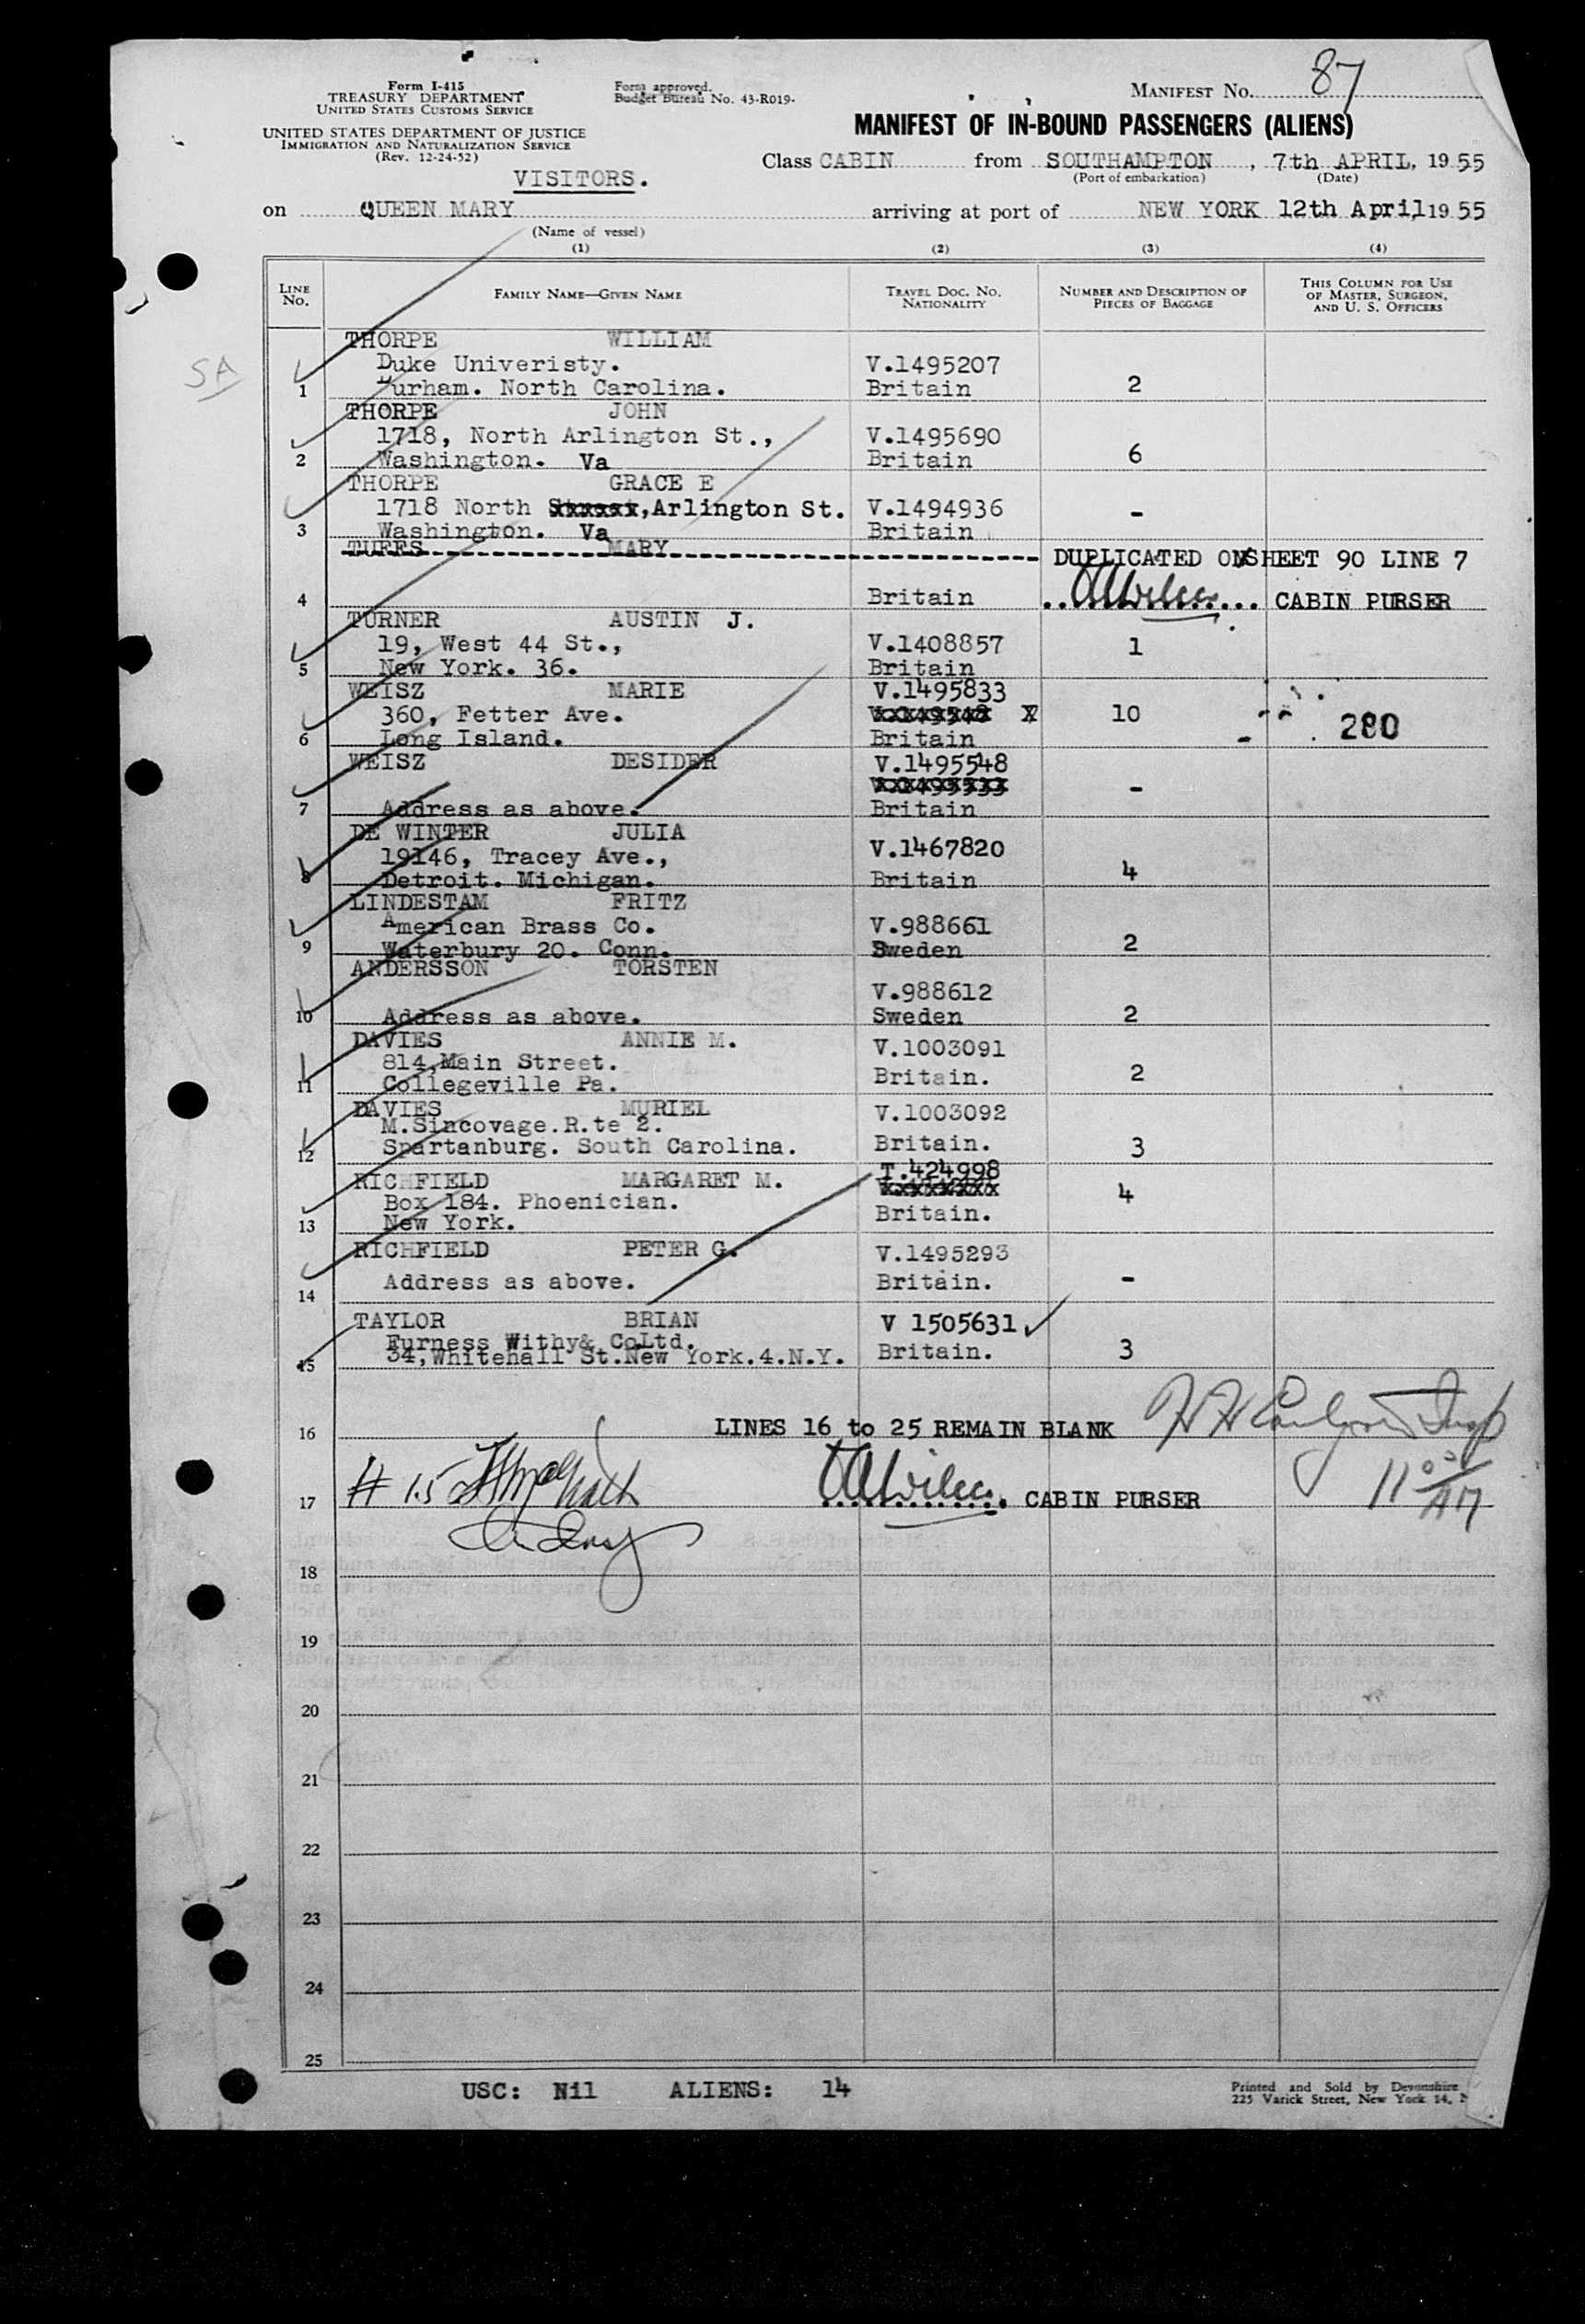 Form I-415
TREASURY DEPARTMENT
UNITED STATES CUSTOMS SERVICE
UNITED STATES DEPARTMENT OF JUSTICE
IMMIGRATION AND NATURALIZATION SERVICE
(Rev. 12-24-52)
Form approved.
Budget Bureau No. 43-R019-
MANIFEST No. 87
MANIFEST OF IN-BOUND PASSENGERS (ALIENS)
Class CABIN from SOUTHAMPTON, 7th APRIL, 1955
(Port of embarkation) (Date)
VISITORS.
on QUEEN MARY arriving at port of NEW YORK 12th April, 1955
(Name of vessel)
(1) (2) (3) (4)
LINE No. FAMILY NAME—GIVEN NAME TRAVEL DOC. NO. NATIONALITY NUMBER AND DESCRIPTION OF PIECES OF BAGGAGE THIS COLUMN FOR USE OF MASTER, SURGEON, AND U. S. OFFICERS
SA
THORPE WILLIAM
Duke Univeristy. V.1495207
1 Durham. North Carolina. Britain 2
THORPE JOHN
1718, North Arlington St., V.1495690
2 Washington. Va Britain 6
THORPE GRACE E
1718 North xxxxxx, Arlington St. V.1494936
3 Washington. Va Britain -
TUFFS MARY DUPLICATED ON SHEET 90 LINE 7
4 Britain CABIN PURSER
TURNER AUSTIN J.
19, West 44 St., V.1408857 1
5 New York. 36. Britain
WEISZ MARIE V.1495833
360, Fetter Ave. 10 280
6 Long Island. Britain -
WEISZ DESIDER V.1495548
-
7 Address as above. Britain
DE WINTER JULIA
19146, Tracey Ave., V.1467820
8 Detroit. Michigan. Britain 4
LINDESTAM FRITZ
American Brass Co. V.988661
9 Waterbury 20. Conn. Sweden 2
ANDERSSON TORSTEN
V.988612
10 Address as above. Sweden 2
DAVIES ANNIE M.
814, Main Street. V.1003091
11 Collegeville Pa. Britain. 2
DAVIES MURIEL V.1003092
M.Sincovage.R.te 2.
12 Spartanburg. South Carolina. Britain. 3
RICHFIELD MARGARET M. T.424998
Box 184. Phoenician. xxxxxxxx 4
13 New York. Britain.
RICHFIELD PETER G. V.1495293
Address as above. Britain. -
14
TAYLOR BRIAN V 1505631
Furness Withy& CoLtd.
15 34, Whitehall St.New York.4.N.Y. Britain. 3
16 LINES 16 to 25 REMAIN BLANK
# 15
17 CABIN PURSER 11 00 AM
18
19
20
21
22
23
24
25
USC: Nil ALIENS: 14
Printed and Sold by Devonshire
225 Varick Street, New York 14,